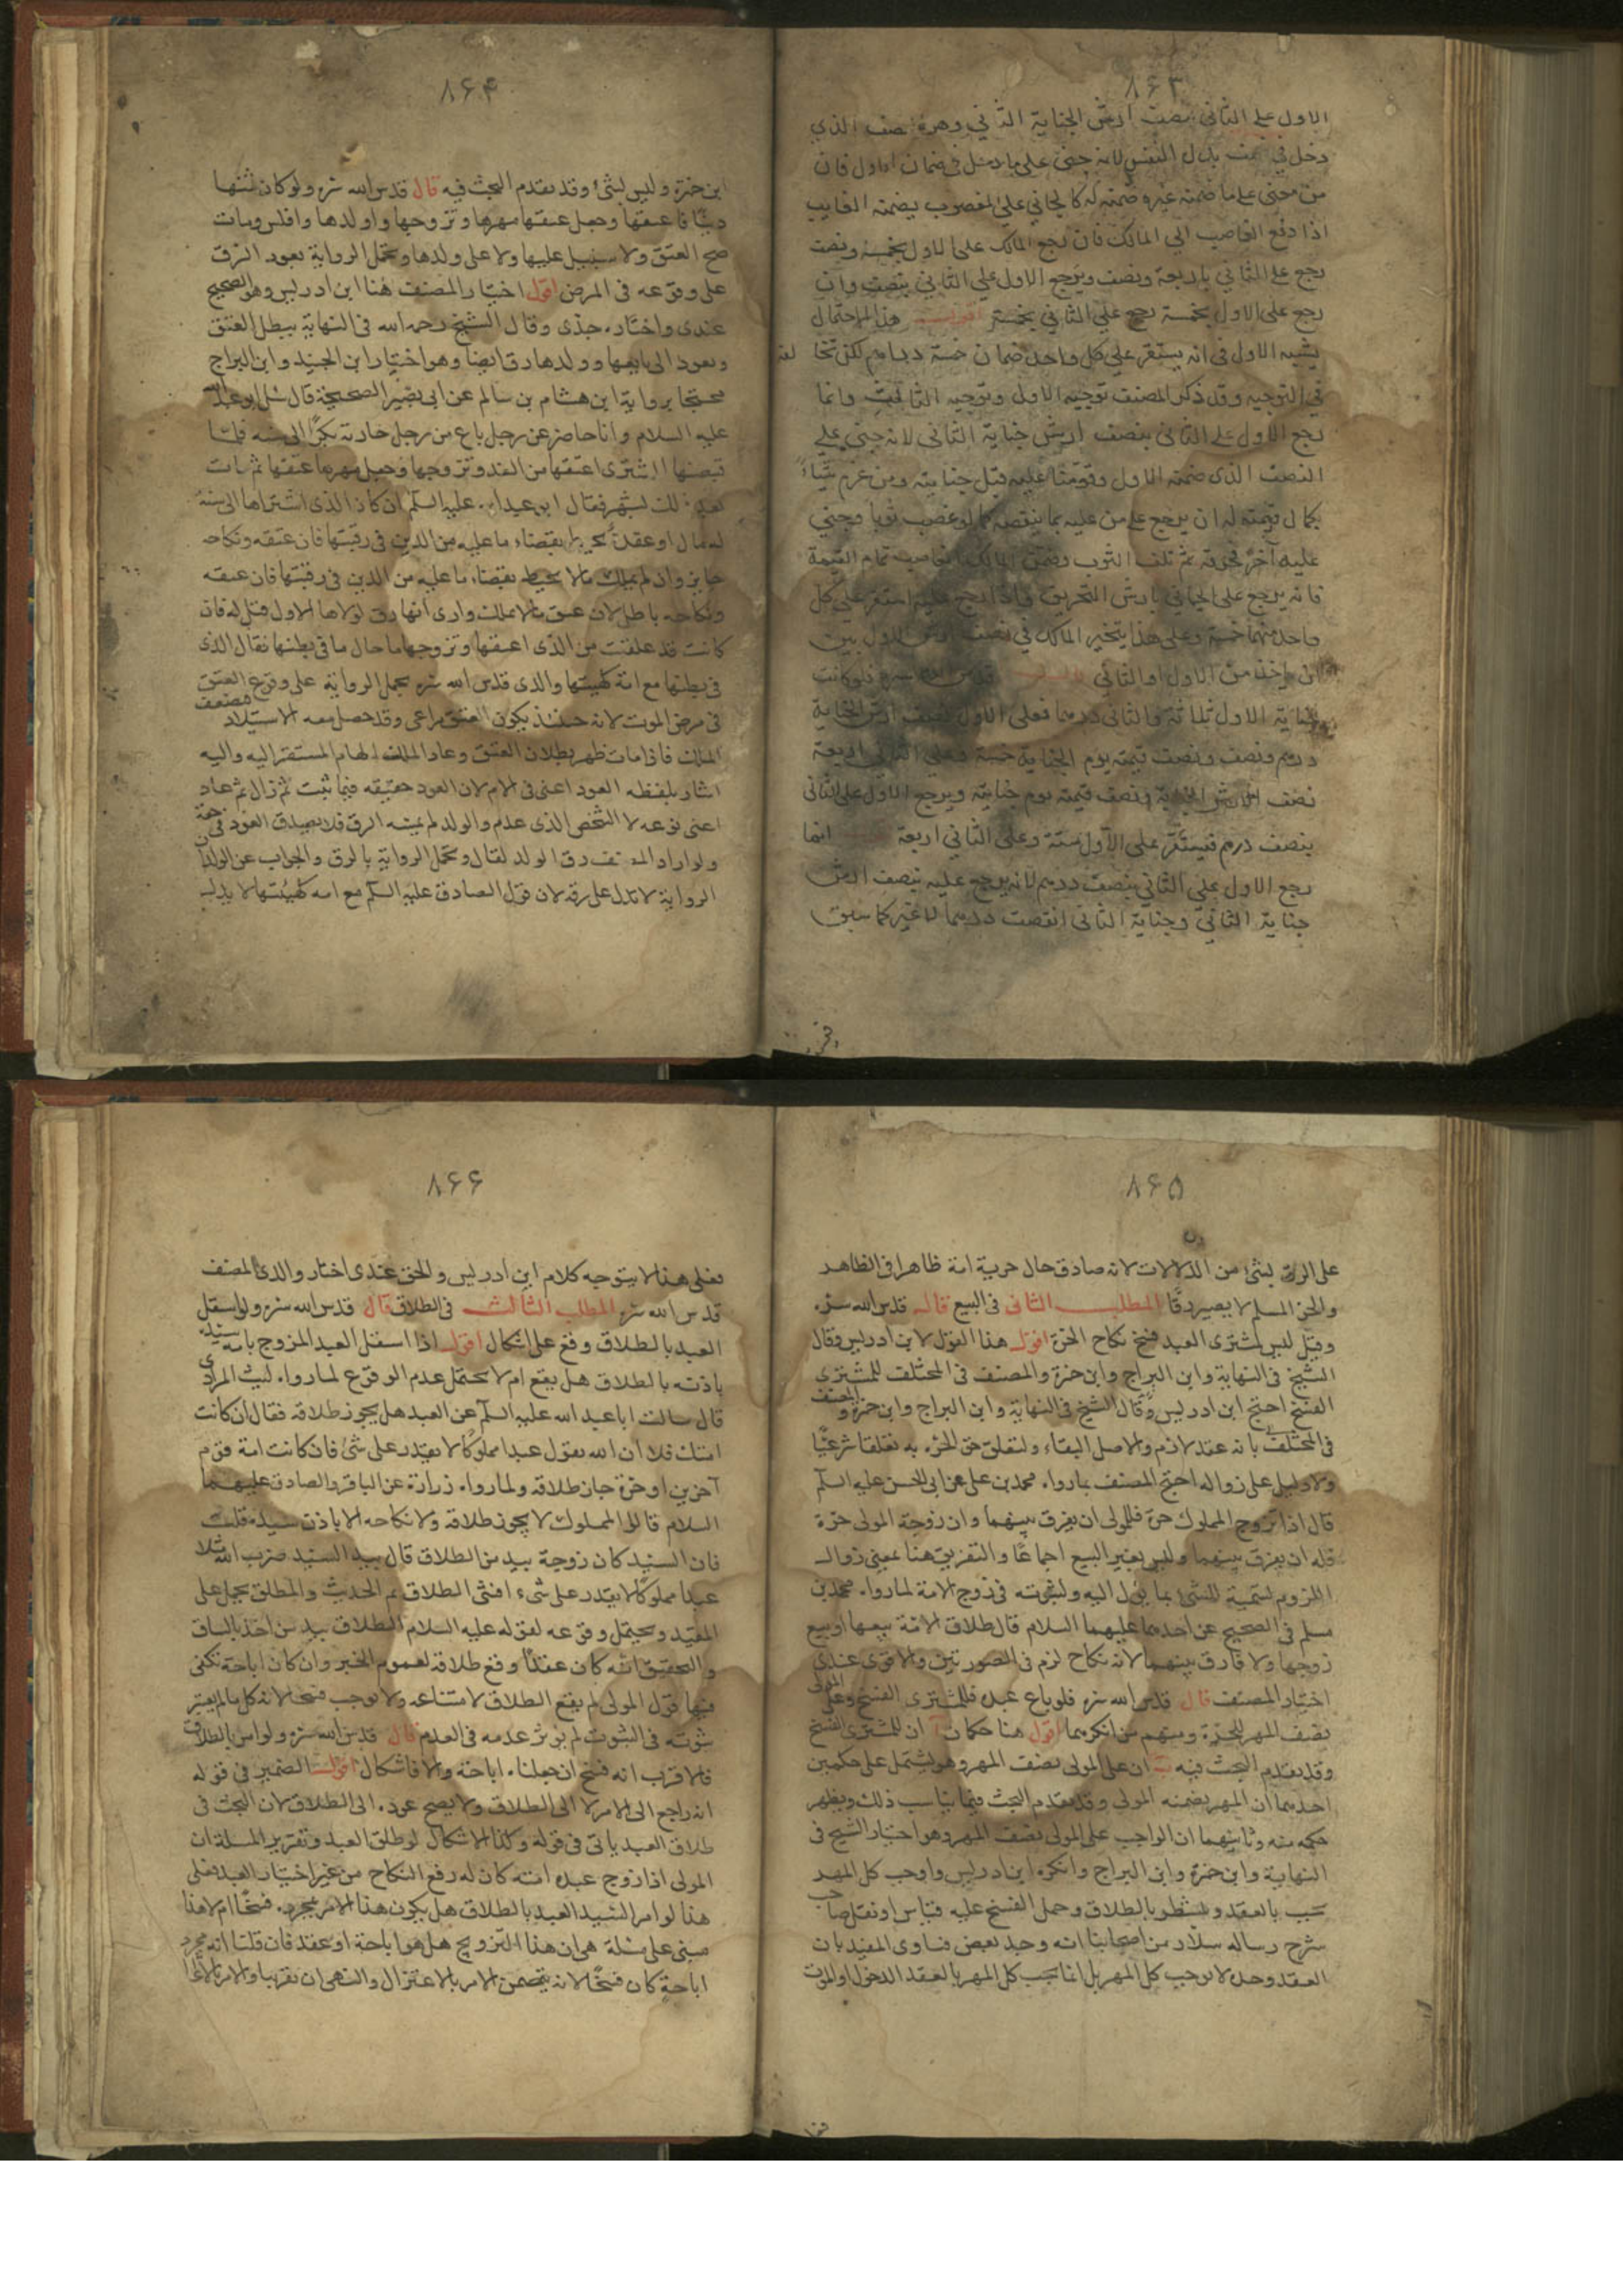 ۸۶۳
الاول على الثانى بنصف ارش الجناية الثاني وهو نصف الذي
دخل في نصف بدل النفس لانه جنى على ما دخل في ضمان الاول فان
من جنى على ما ضمنه غيره ضمنه له كالجاني على المغصوب يضمنه الغاصب
اذا دفع الغاصب الى المالك فان رجع المالك على الاول بخمسة ونصف
رجع على الثاني باربعة ونصف ويرجع الاول على الثاني بنصف وان
رجع على الاول بخمسة رجع على الثاني بخمسة اقول هذا الاحتمال
يشبه الاول فى انه يستقر على كل واحد ضمان خمسة دراهم لكن تخا لفه
في التوجيه وقد ذكر المصنف توجيه الاول وتوجيه الثا وانما
رجع الاول على الثانى بنصف ارش جناية الثانى لانه جنى على
النصف الذى ضمنه الاول وقومنا عليه قبل جنايته ومن غرم شيئا
بكمال قيمته له ان يرجع على من عليه بما ينقصه كما لو غصب ثوبا فجنى
عليه آخر فخرقه ثم تلف الثوب وضمن المالك الغاصب تمام القيمة
فانه يرجع على الجاني بارش التخريق فاذا رجع عليه استقر على كل
واحد منهما خمسة وعلى هذا يتخير المالك في نصف ارش الاول بين
ان ياخذ من الاول او الثاني قال قدس الله سره فلو كانت
جناية الاول ثلاثة والثانى درهما فعلى الاول نصف ارش الجناية
درهم ونصف ونصف قيمته يوم الجناية خمسة وعلى الثاني اربعة
نصف ارش الجناية ونصف قيمته يوم جنايته ويرجع الاول على الثانى
بنصف درهم فيستقر على الاول ستة وعلى الثاني اربعة انما
رجع الاول على الثاني بنصف درهم لانه يرجع عليه بنصف ارش
جناية الثاني وجناية الثانى انقصت درهما لا غير كما سبق
۸۶۴
ابن حمزة وليس بشئ وقد تقدم البحث فيه قال قدس الله سره ولو كان ثمنها
دينًا فاعتقها وجعل عتقها مهرها وتزوجها واولدها وافلس ومات
صح العتق ولا سبيل عليها ولا على ولدها وتحمل الرواية بعود الرق
على وقوعه فى المرض اقول اختار المصنف هنا ابن ادريس وهو الصحيح
عندى واختاره جدى وقال الشيخ رحمه الله فى النهاية يبطل العتق
وتعود الى بايعها وولدها رق ايضا وهو اختيار ابن الجنيد وابن البراج
محتجا برواية ابن هشام بن سالم عن ابى بصير الصحيحة قال سئل ابو عبد الله
عليه السلام وانا حاضر عن رجل باع من رجل جارية بكرًا الى سنه فلما
قبضها المشترى اعتقها من الغد وتزوجها وجعل مهرها عتقها ثم مات
بعد ذلك بشهر فقال ابو عبد الله عليه السلم ان كان الذى اشتراها الى سنه
له مال او عقدة تحيط بقضاء ما عليه من الدين فى رقبتها فان عتقه ونكاحه
جايز وان لم يملك مالا يحيط بقضاء ما عليه من الدين فى رقبتها فان عتقه
ونكاحه باطل لان عتق ما لا يملك وارى انها رق لمولاها الاول قيل له فان
كانت قد علقت من الذى اعتقها وتزوجها ما حال ما فى بطنها فقال الذى
فى بطنها مع امه كهيئتها والذى قدس الله سره يحمل الرواية على وقوع العتق
فى مرض الموت لانه حينئذ يكون العتق مراعى وقد حصل معه الاستيلاد مضعف
الملك فاذا مات ظهر بطلان العتق وعاد الملك لها المستقر اليه واليه
اشار بلفظه العود اعنى فى الام لان العود حقيقه فيما ثبت ثم زال ثم عاد
اعنى نوعه لا الشخص الذى عدم والولد لم يمسه الرق فلا يصدق العود فى حقه
ولو اراد المصنف رق الولد لقال وتحمل الرواية بالرق والجواب عن الولد ان
الرواية لا تدل على رقه لان قول الصادق عليه السلم مع امه كهيئتها لا يدل
۸۶۵
على الرق بشئ من الدلالات لانه صادق حال حرية امه ظاهرا فى الظاهر
والحر المسلم لا يصير رقًا المطلب الثانى فى البيع قال قدس الله سره
وقيل ليس لمشترى العبد فسخ نكاح الحرة اقول هذا القول لابن ادريس وقال
الشيخ فى النهاية وابن البراج وابن حمزة والمصنف فى المختلف للمشترى
الفسخ احتج ابن ادريس وقال الشيخ فى النهاية وابن البراج وابن حمزة والمصنف
فى المختلف بانه عقد لازم والاصل البقاء ولتعلق حق الحرة به تعلقا شرعيًا
ولا دليل على زواله احتج المصنف بما رواه محمد بن على عن ابى الحسن عليه السلم
قال اذا تزوج المملوك حرة فللمولى ان يفرق بينهما وان زوجه المولى حرة
فله ان يفرق بينهما وليس بغير البيع اجماعًا والتفريق هنا بمعنى زوال
اللزوم تسمية للشئ بما يؤل اليه ولثبوته فى زوج الامة لما رواه محمد بن
مسلم فى الصحيح عن احدهما عليهما السلام قال طلاق الامة بيعها او بيع
زوجها ولا فارق بينهما لانه نكاح لزم فى الصورتين والاقوى عندى
اختيار المصنف قال قدس الله سره فلو باع عبده فللمشترى الفسخ وعلى المولى
نصف المهر للحرة ومنهم من انكرهما اقول هنا حكمان آ ان للمشترى الفسخ
وقد تقدم البحث فيه ب ان على المولى نصف المهر وهو يشتمل على حكمين
احدهما ان المهر يضمنه المولى وقد تقدم البحث فيما يناسب ذلك ويظهر
حكمه منه وثانيهما ان الواجب على المولى نصف المهر وهو اختيار الشيخ فى
النهاية وابن حمزة وابن البراج وانكره ابن ادريس واوجب كل المهر
تجب بالعقد وتشطر بالطلاق وحمل الفسخ عليه قياس او نقل صاحب
شرح رساله سلار من اصحابنا انه وجد بعض فتاوى المفيد بان
العقد وحده لا يوجب كل المهر بل انما يجب كل المهر بالعقد الدخول او الموت
۸۶۶
فعلى هذا لا يتوجه كلام ابن ادريس والحق عندى اختار والدى المصنف
قدس الله سره المطلب الثالث فى الطلاق قال قدس الله سره ولو استقل
العبد بالطلاق وقع على اشكال اقول اذا استقل العبد المزوج بامة سيده
باذنه بالطلاق هل يقع ام لا يحتمل عدم الوقوع لما رواه ليث المرادى
قال سالت ابا عبد الله عليه السلم عن العبد هل يجوز طلاقه فقال ان كانت
امتك فلا ان الله يقول عبدا مملوكًا لا يقدر على شئ فان كانت امة قوم
آخرين او حرة جاز طلاقه ولما رواه زرارة عن الباقر والصادق عليهما
السلام قالا المملوك لا يجوز طلاقه ولا نكاحه الا باذن سيده قلت
فان السيد كان زوجه بيد من الطلاق قال بيد السيد ضرب الله مثلا
عبدا مملوكًا لا يقدر على شىء افشئ الطلاق تم الحديث والمطلق يحمل على
المقيد ويحتمل وقوعه لقوله عليه السلام الطلاق بيد من اخذ بالساق
والتحقيق انه كان عقدًا وقع طلاقه لعموم الخبر وان كان اباحة تكفى
فيها قول المولى لم يقع الطلاق لامتناعه ولا يوجب فسخا لانه كل ما لم يعتبر
ثبوته فى الثبوت لم يؤثر عدمه فى العدم قال قدس الله سره ولو امر بالطلاق
فالاقرب انه فسخ ان جعلناه اباحة والا فاشكال اقول الضمير فى قوله
انه راجع الى الامر لا الى الطلاق ولا يصح عوده الى الطلاق لان البحث فى
طلاق العبد ياتى فى قوله وكذا الاشكال لو طلق العبد وتقرير المسلة ان
المولى اذا زوج عبده امته كان له رفع النكاح من غير اختيار العبد فعلى
هذا لو امر السيد العبد بالطلاق هل يكون هذا الامر بمجرده فسخًا ام لا هذا
مبنى على مسئلة هى ان هذا التزويج هل هو اباحة او عقد فان قلنا انه مجرد
اباحة كان فسخًا لانه يتضمن الامر بالاعتزال والنهى ان تقربها والامر